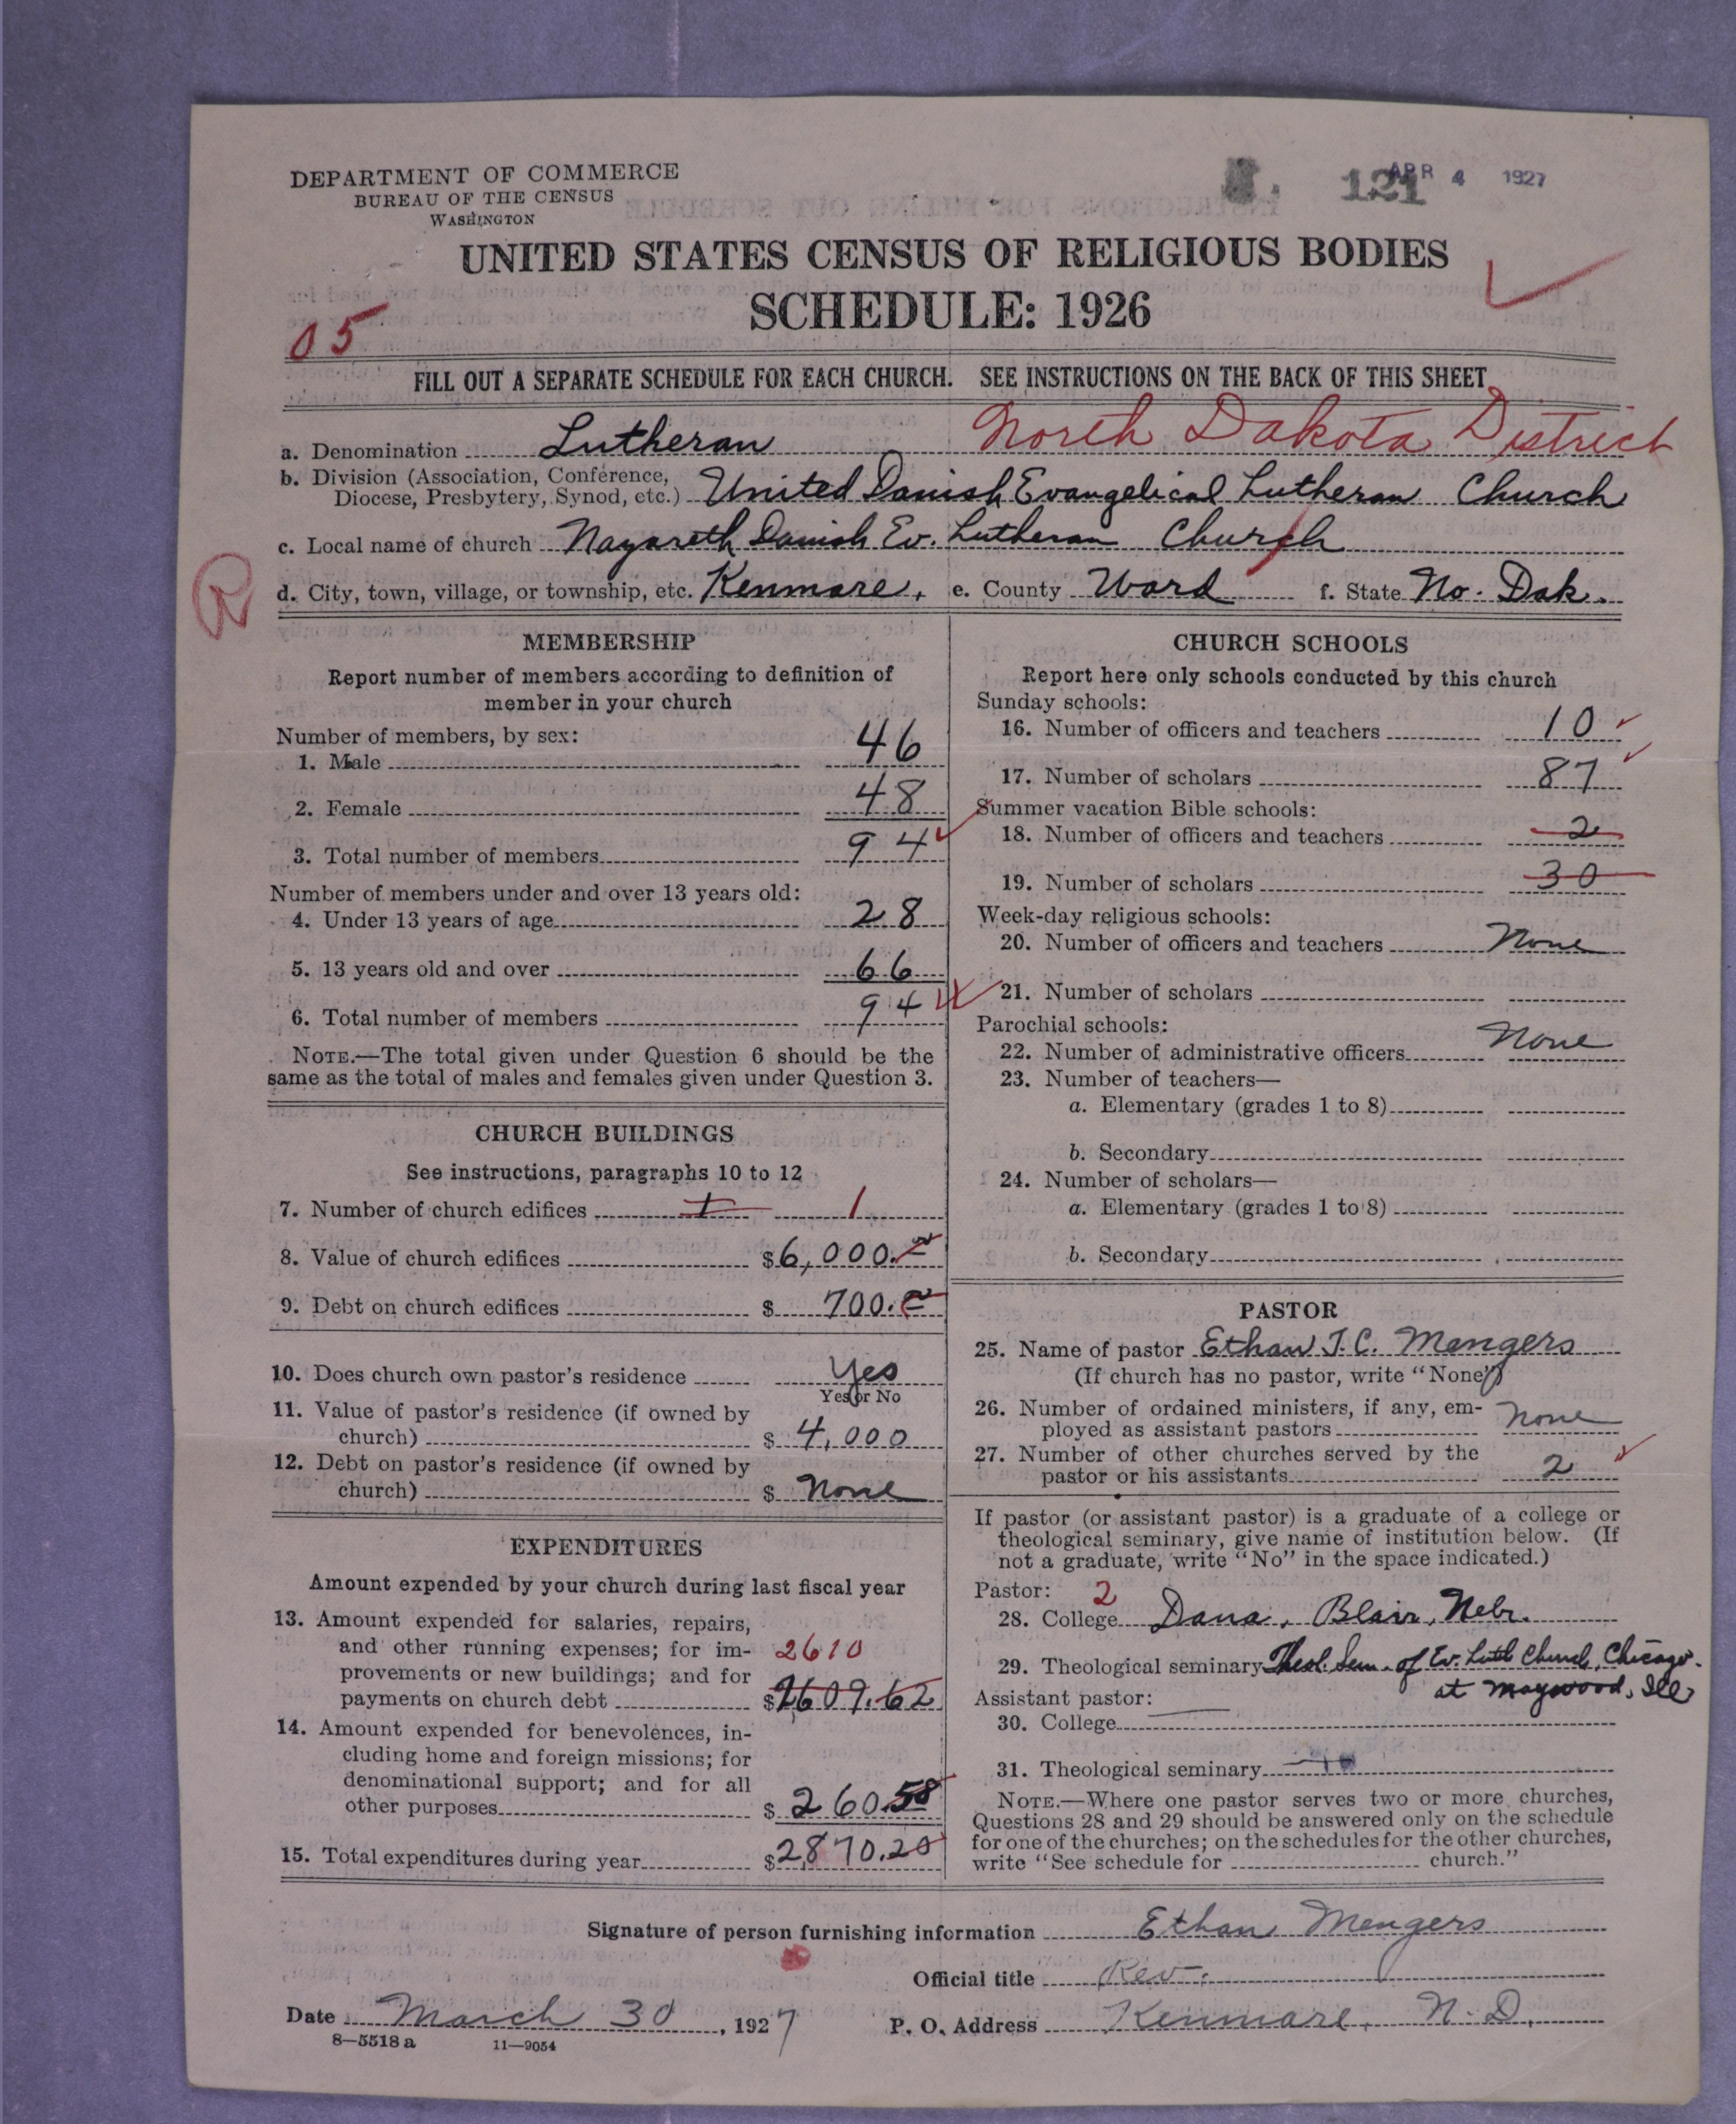 DEPARTMENT OF COMMERCE
BUREAU OF THE CENSUS
WASHINGTON
121
APR 4 1927
UNITED STATES CENSUS OF RELIGIOUS BODIES
SCHEDULE: 1926
05
FILL OUT A SEPARATE SCHEDULE FOR EACH CHURCH. SEE INSTRUCTIONS ON THE BACK OF THIS SHEET
North Dakota District
a. Denomination Lutheran
b. Division (Association, Conference,
Diocese, Presbytery, Synod, etc.) United Danish Evangelical Lutheran Church
c. Local name of church Nazareth Danish Ev. Lutheran Church
R
d. City, town, village, or township, etc. Kenmare, e. County Ward f. State No. Dak.
MEMBERSHIP
Report number of members according to definition of
member in your church
Number of members, by sex:
1. Male 46
2. Female 48
3. Total number of members 94
Number of members under and over 13 years old:
4. Under 13 years of age 28
5. 13 years old and over 66
6. Total number of members 94
NOTE.—The total given under Question 6 should be the
same as the total of males and females given under Question 3.
CHURCH BUILDINGS
See instructions, paragraphs 10 to 12
7. Number of church edifices 1 1
8. Value of church edifices $6,000.
9. Debt on church edifices $ 700.
10. Does church own pastor's residence Yes
Yes or No
11. Value of pastor's residence (if owned by
church) $ 4,000
12. Debt on pastor's residence (if owned by
church) $ None
EXPENDITURES
Amount expended by your church during last fiscal year
13. Amount expended for salaries, repairs,
and other running expenses; for im- 2610
provements or new buildings; and for
payments on church debt $2609.62
14. Amount expended for benevolences, in-
cluding home and foreign missions; for
denominational support; and for all
other purposes $ 260.58
15. Total expenditures during year $2,870.20
CHURCH SCHOOLS
Report here only schools conducted by this church
Sunday schools:
16. Number of officers and teachers 10
17. Number of scholars 87
Summer vacation Bible schools:
18. Number of officers and teachers 2
19. Number of scholars 30
Week-day religious schools:
20. Number of officers and teachers None
21. Number of scholars
Parochial schools:
22. Number of administrative officers None
23. Number of teachers—
a. Elementary (grades 1 to 8)
b. Secondary
24. Number of scholars—
a. Elementary (grades 1 to 8)
b. Secondary
PASTOR
25. Name of pastor Ethan J. C. Mengers
(If church has no pastor, write "None")
26. Number of ordained ministers, if any, em-
ployed as assistant pastors None
27. Number of other churches served by the
pastor or his assistants 2
If pastor (or assistant pastor) is a graduate of a college or
theological seminary, give name of institution below. (If
not a graduate, write "No" in the space indicated.)
Pastor: 2
28. College Dana, Blair, Nebr.
29. Theological seminary Theol. Sem. of Ev. Luth Church, Chicago.
at Maywood, Ill
Assistant pastor:
30. College
31. Theological seminary
NOTE.—Where one pastor serves two or more churches,
Questions 28 and 29 should be answered only on the schedule
for one of the churches; on the schedules for the other churches,
write "See schedule for church."
Signature of person furnishing information Ethan Mengers
Official title Rev.
Date March 30, 1927 P. O. Address Kenmare, N. D.
8—5518 a 11—9054